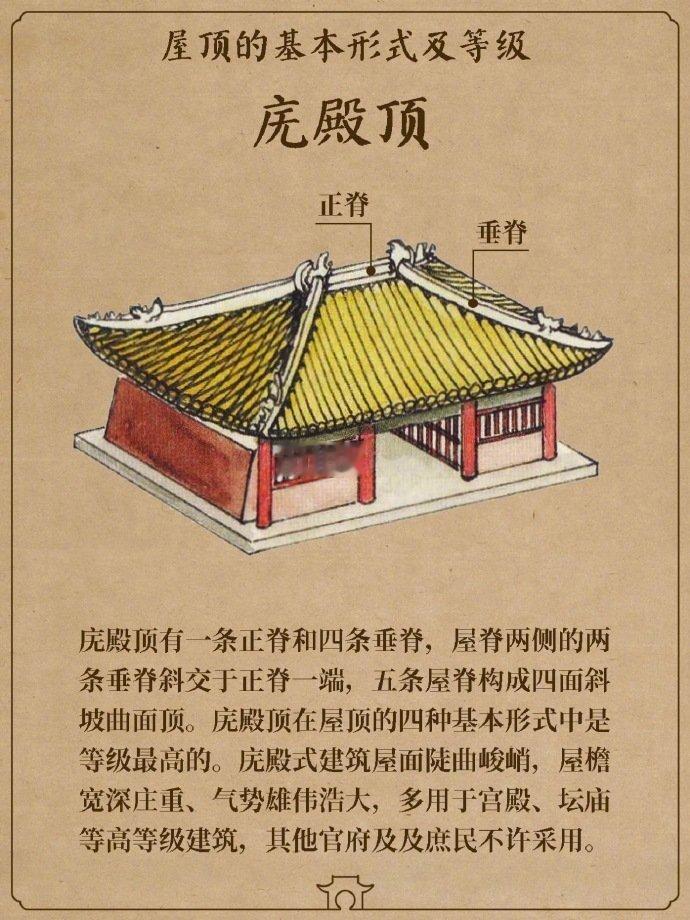 屋顶的基本形式及等级
庑殿顶
正脊
垂脊
庑殿顶有一条正脊和四条垂脊，屋脊两侧的两
条垂脊斜交于正脊一端，五条屋脊构成四面斜
坡曲面顶。庑殿顶在屋顶的四种基本形式中是
等级最高的。庑殿式建筑屋面陡曲峻峭，屋檐
宽深庄重、气势雄伟浩大，多用于宫殿、坛庙
等高等级建筑，其他官府及及庶民不许采用。